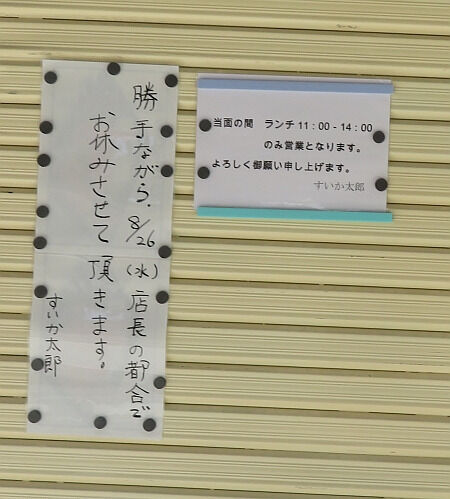 勝手ながら、8/26(水)店長の都合で
お休みさせて頂きます。
すいか太郎
当面の間 ランチ 11:00-14:00
のみ営業となります。
よろしく御願い申し上げます。
すいか太郎